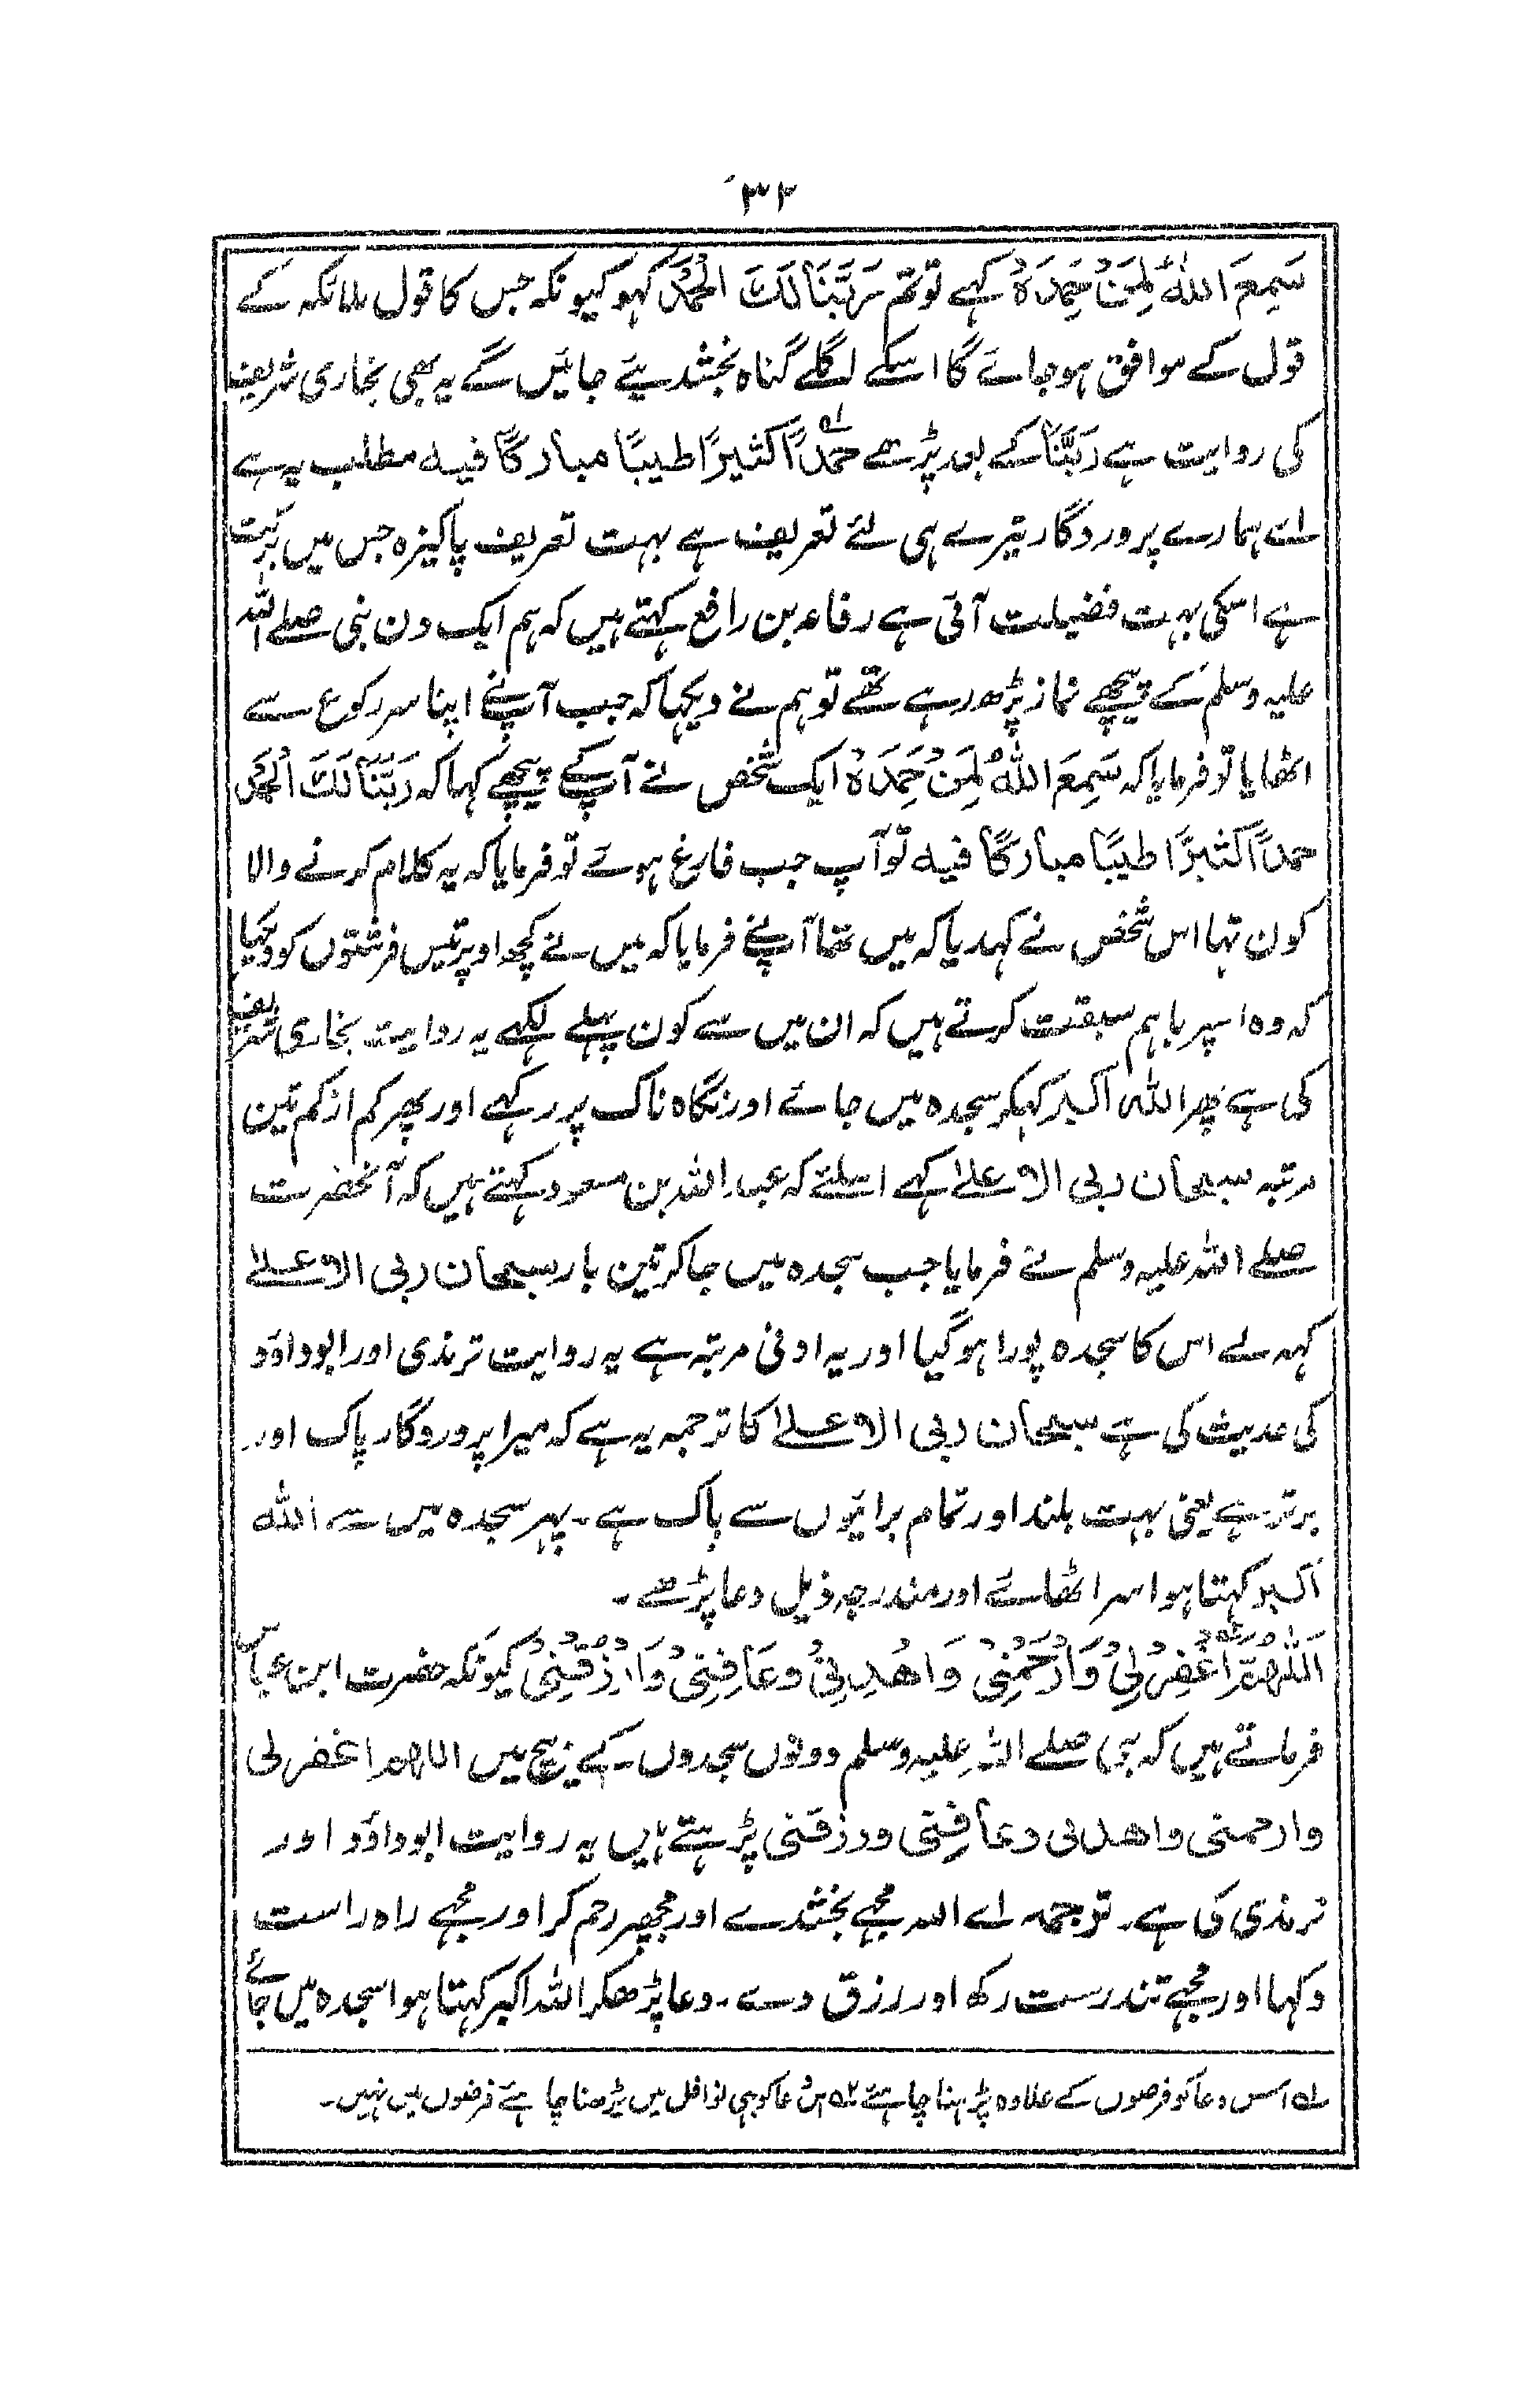 ۳۲
سَمِعَ اللهُ لِمَنْ حَمِدَهُ کہے تو تم رَبَّنَا لَكَ الْحَمْدُ کہو کیونکہ جس کا قول ملائکہ کے
قول کے موافق ہوجائے گا اسکے اگلے گناہ بخشدیئے جائیں گے یہ بھی بخاری شریف
کی روایت ہے رَبَّنَا کے بعد پڑھے حَمْدًا كثيرًا طيبًا مباركًا فيه مطلب یہ ہے
اے ہمارے پروردگار تیرے ہی لئے تعریف ہے بہت تعریف پاکیزہ جس میں برکت
ہے اسکی بہت فضیلت آتی ہے رفاعہ بن رافع کہتے ہیں کہ ہم ایک دن نبی صلے اللہ
علیہ وسلم کے پیچھے نماز پڑھ رہے تھے تو ہم نے دیکہا کہ جب آپنے اپنا سر رکوع سے
اٹھایا تو فرمایا کہ سَمِعَ اللهُ لِمَنْ حَمِدَهُ ایک شخص نے آپکے پیچھے کہا کہ رَبَّنَا لَكَ الْحَمْدُ
حمدًا كثيرًا طيبًا مباركًا فيه تو آپ جب فارغ ہوئے تو فرمایا کہ یہ کلام کرنے والا
کون تہا اس شخص نے کہدیا کہ میں تھا آپنے فرمایا کہ میں نے کچھ اوپر تیس فرشتوں کو دیکہا
کہ وہ اسپر باہم سبقت کرتے ہیں کہ ان میں سے کون پہلے لکہے یہ روایت بخاری شریف
کی ہے پھر اللہ اکبر کہکر سجدہ میں جائے اور نگاہ ناک پر رکہے اور پھر کم از کم تین
مرتبہ سبحان ربی الاعلےٰ کہے اسلئے کہ عبد اللہ بن مسعود کہتے ہیں کہ آنحضرت
صلے اللہ علیہ وسلم نے فرمایا جب سجدہ میں جاکر تین بار سبحان ربی الاعلےٰ
کہہ لے اس کا سجدہ پورا ہوگیا اور یہ ادنیٰ مرتبہ ہے یہ روایت ترمذی اور ابوداؤد
کی حدیث کی ہے سبحان ربی الاعلےٰ کا ترجمہ یہ ہے کہ میرا پروردگار پاک اور
برتر ہے یعنی بہت بلند اور تمام برائیوں سے پاک ہے۔ پہر سجدہ میں سے اللہ
اکبر کہتا ہوا سر اٹھائے اور مندرجہ ذیل دعا پڑھے۔
اَللّٰهُمَّ اغْفِرْ لِيْ وَارْحَمْنِيْ وَاهْدِنِيْ وَعَافِنِيْ وَارْزُقْنِيْ کیونکہ حضرت ابن عباس
فرماتے ہیں کہ نبی صلے اللہ علیہ وسلم دونوں سجدوں کے بیچ میں اللهم اغفر لی
وارحمنی واهدنی وعافِنِی ورزقنی پڑہتے ہیں یہ روایت ابوداؤد اور
ترمذی کی ہے۔ ترجمہ اے اللہ مجہے بخشدے اور مجھپر رحم کر اور مجہے راہ راست
دکہا اور مجہے تندرست رکھ اور رزق دے۔ دعا پڑھکر اللہ اکبر کہتا ہوا سجدہ میں جائے
لہ اس دعا کو فرضوں کے علاوہ پڑہنا چاہئے ۲ہ اس دعا کو بہی نوافل میں پڑھنا چاہئے فرضوں میں نہیں۔